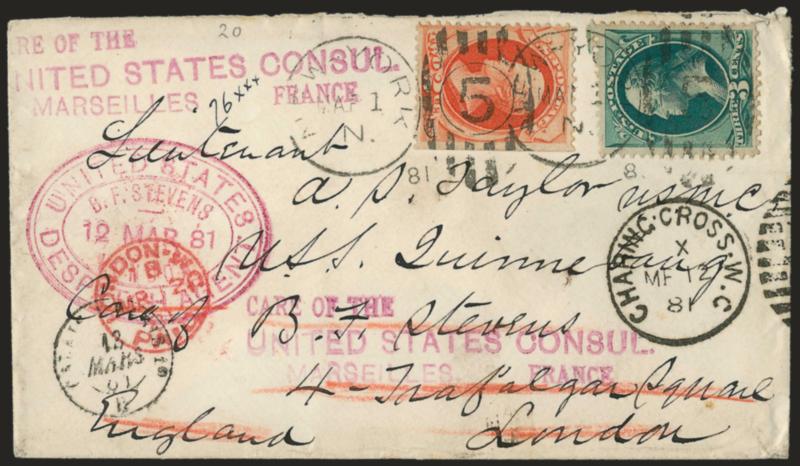 20
CARE OF THE
UNITED STATES CONSUL.
MARSEILLES FRANCE
76xxx
NEW YORK
MAR 1
81
5
US POSTAGE
THREE CENTS
3
Lieutenant
A. S. Taylor USMC
U.S.S. Quinnebaug
Care of B. F. Stevens
4- Trafalgar Square
England London
UNITED STATES
B. F. STEVENS
12 MAR 81
DESPATCH AGENT
LONDON W.C.
PAID
CHARING·CROSS·W.C
X
81
CALAIS
12
MARS
81
CARE OF THE
UNITED STATES CONSUL.
MARSEILLES. FRANCE